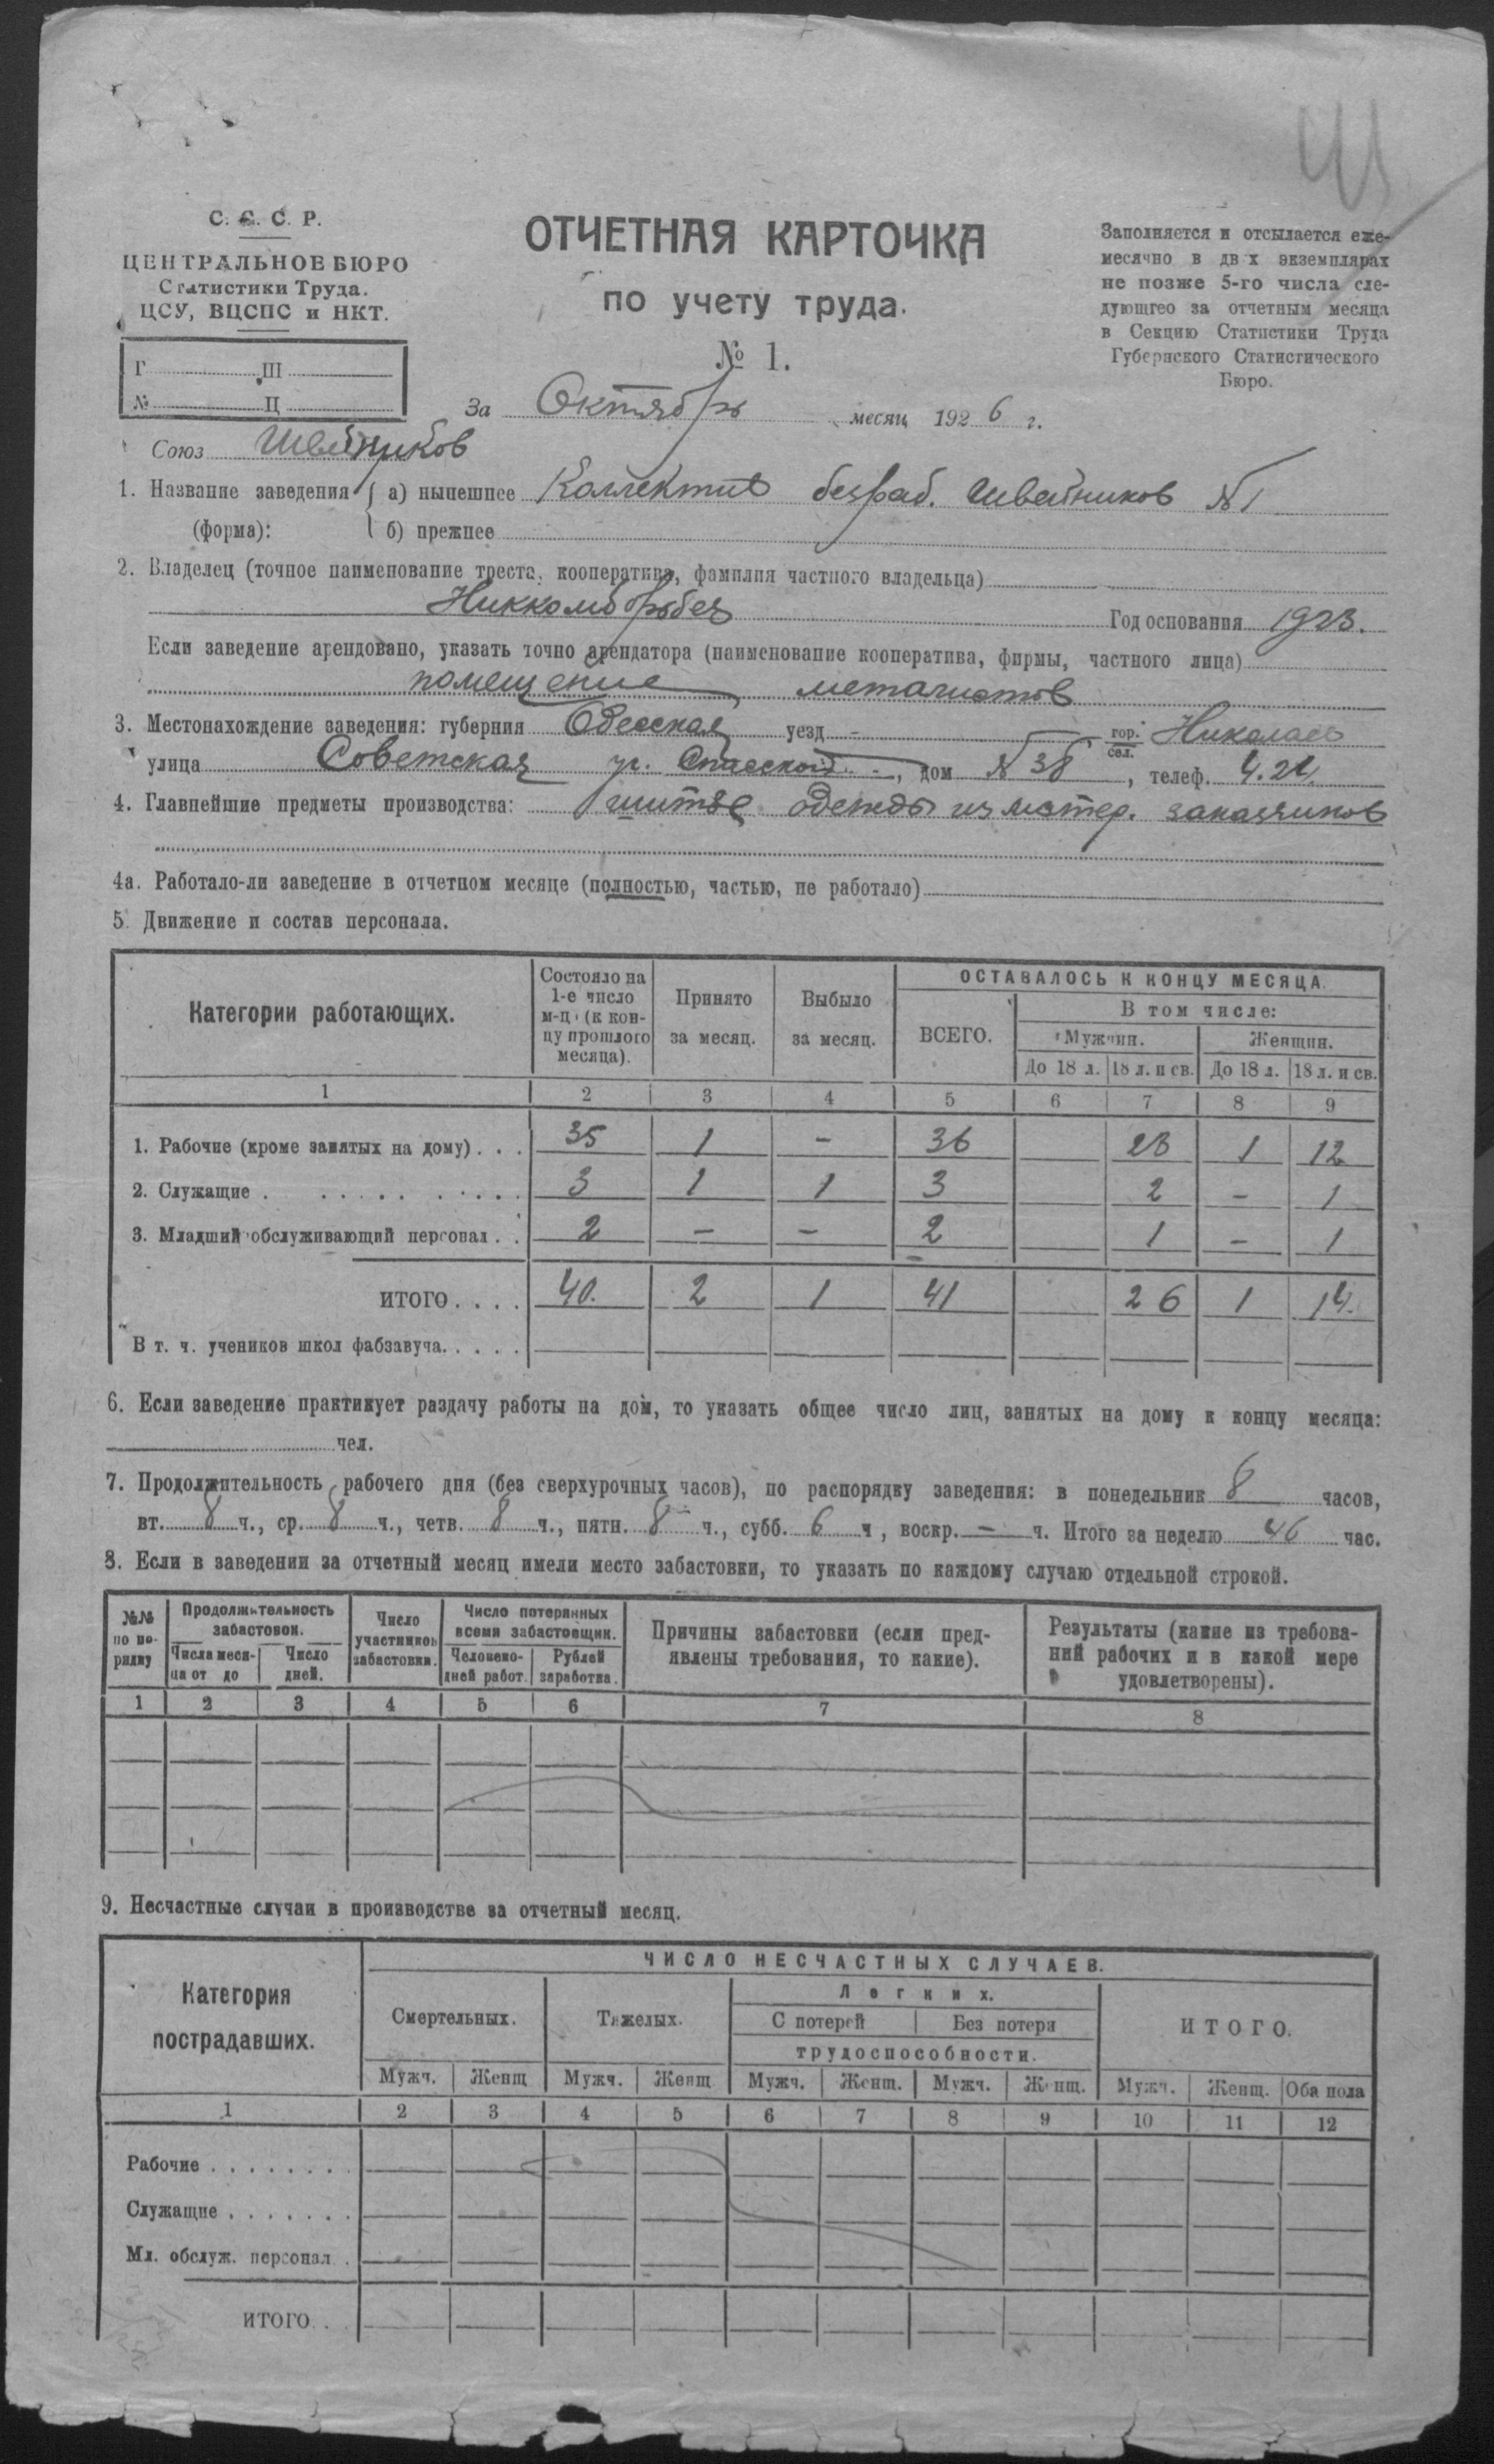 С. С. С. Р.
ЦЕНТРАЛЬНОЕ БЮРО
Статистики Труда.
ЦСУ, ВЦСПС и НКТ.
Г. Ш
№ Ц
ОТЧЕТНАЯ КАРТОЧКА
по учету труда.
№ 1.
За Октябрь месяц 1926 г.
Заполняется и отсылается еже-
месячно в дв х экземплярах
не позже 5-го числа сле-
дующгео за отчетным месяца
в Секцию Статистики Труда
Губернского Статистического
Бюро.
Союз Швейников
1. Название заведения а) нынешнее Коллектив безраб. Швейников №1
(форма): б) прежнее
2. Владелец (точное наименование треста, кооператива, фамилия частного владельца)
Никкомборьбез Год основания 1923.
Если заведение арендовано, указать точно арендатора (наименование кооператива, фирмы, частного лица)
помещение металистов
3. Местонахождение заведения: губерния Одесская уезд - гор. сел. Николаев
улица Советская уг. Спасской, дом № 38, телеф. 4.24.
4. Главнейшие предметы производства: шитье одежды из матер. заказчиков
4а. Работало-ли заведение в отчетном месяце (полностью, частью, не работало)
5. Движение и состав персонала.
Категории работающих.
Состояло на 1-е число м-ц (к кон-цу прошлого месяца).
Принято за месяц.
Выбыло за месяц.
ОСТАВАЛОСЬ К КОНЦУ МЕСЯЦА.
ВСЕГО.
В том числе:
Мужчин. Женщин.
До 18 л. 18 л. и св. До 18 л. 18 л. и св.
1 2 3 4 5 6 7 8 9
1. Рабочие (кроме занятых на дому) . . . 35 1 - 36 23 1 12
2. Служащие . . . . . . . . . . 3 1 1 3 2 - 1
3. Младший обслуживающий персонал . . 2 - - 2 1 - 1
ИТОГО . . . . 40. 2 1 41 26 1 14.
В т. ч. учеников школ фабзавуча. . . . .
6. Если заведение практикует раздачу работы на дом, то указать общее число лиц, занятых на дому к концу месяца:
чел.
7. Продолжительность рабочего дня (без сверхурочных часов), по распорядку заведения: в понедельник 8 часов,
вт. 8 ч., ср. 8 ч., четв. 8 ч., пятн. 8 ч., субб. 6 ч , воскр. - ч. Итого за неделю 46 час.
8. Если в заведении за отчетный месяц имели место забастовки, то указать по каждому случаю отдельной строкой.
№№ по по-рядку
Продолжительность забастовок.
Числа меся-ца от до
Число дней.
Число участников забастовки.
Число потерянных всеми забастовщик.
Человеко-дней работ.
Рублей заработка.
Причины забастовки (если пред-
явлены требования, то какие).
Результаты (какие из требова-
ний рабочих и в какой мере
удовлетворены).
1 2 3 4 5 6 7 8
9. Несчастные случаи в производстве за отчетный месяц.
Категория
пострадавших.
ЧИСЛО НЕСЧАСТНЫХ СЛУЧАЕВ.
Смертельных. Тяжелых.
Легких.
С потерей Без потери
трудоспособности.
ИТОГО.
Мужч. Женщ Мужч. Женщ Мужч. Женщ. Мужч. Женщ. Мужч. Женщ. Оба пола
1 2 3 4 5 6 7 8 9 10 11 12
Рабочие . . . . . . . .
Служащие . . . . . . .
Мл. обслуж. персонал . .
ИТОГО . .